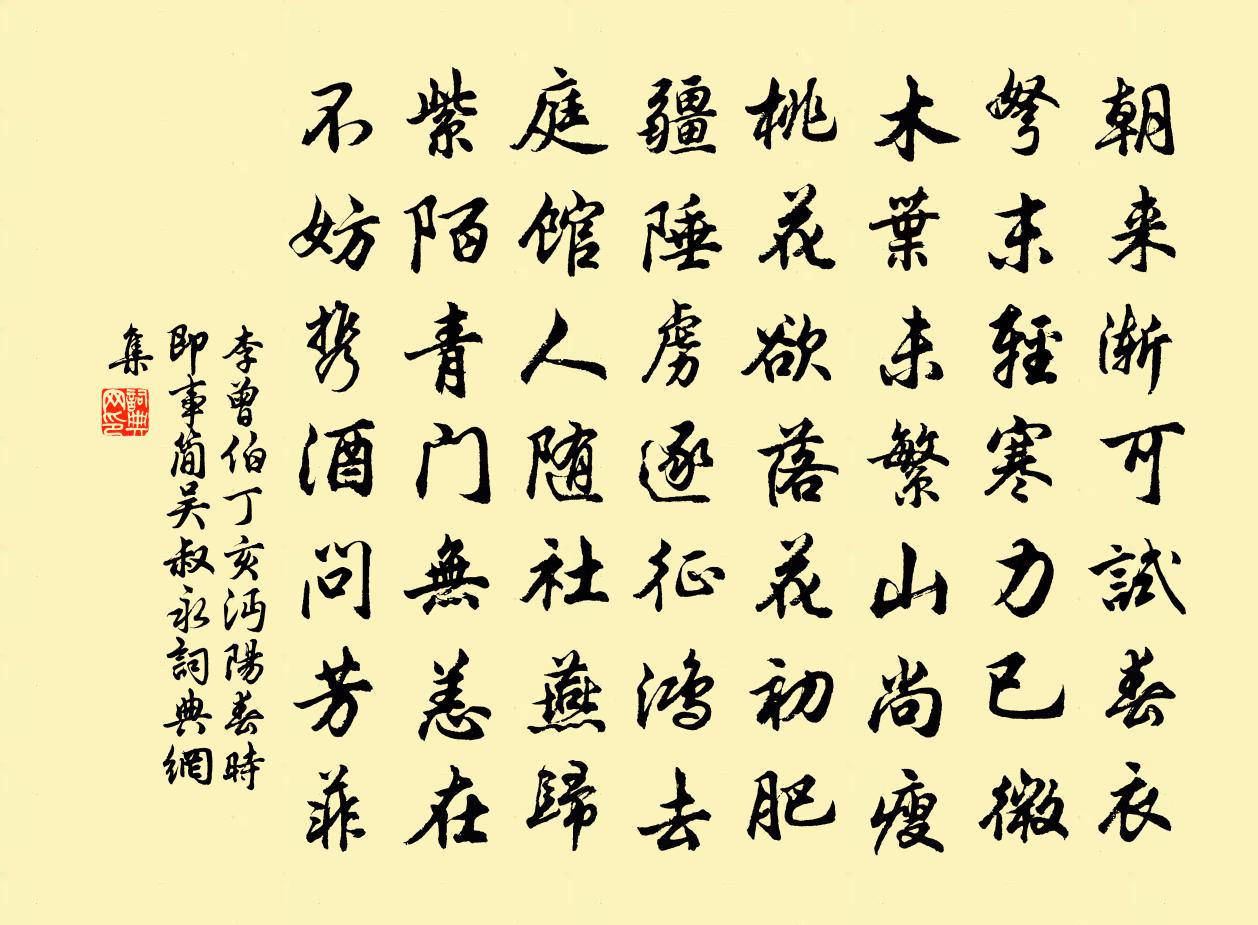 朝来渐可試春衣
弩末輕寒力已微
木葉未繁山尚瘦
桃花欲落花初肥
疆陲虏逐征鸿去
庭馆人随社燕歸
紫陌青門無恙在
不妨携酒問芳菲
李曾伯丁亥沔陽春時
即事简吴叔永詞典網
集
詞典网印